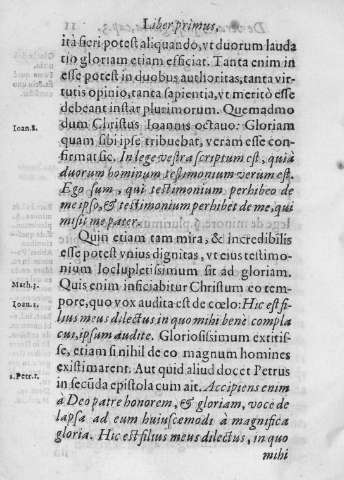 Liber primus,
ità fieri potest aliquando, vt duorum lauda
tio gloriam etiam efficiat. Tanta enim in
esse potest in duobus authoritas, tanta vir-
tutis opinio, tanta sapientia, vt meritò esse
debeant instar plurimorum. Quemadmo
Ioan. 8.
dum Christus Ioannis octauo: Gloriam
quam sibi ipse tribuebat, veram esse con-
firmat sic. In lege vestra scriptum est, quià
duorum hominum testimonium verum est.
Ego sum, qui testimonium perhibeo de
me ipso, & testimonium perhibet de me, qui
misit me pater.
Quin etiam tam mira, & incredibilis
esse potest vnius dignitas, vt eius testimo-
nium loclupletissimum sit ad gloriam.
Math. 3.
Quis enim inficiabitur Christum eo tem-
Ioan. 1.
pore, quo vox audita est de cœlo: Hic est fi-
lius meus dilectus in quo mihi benè compla
cui, ipsum audite. Gloriosissimum extitis-
se, etiam si nihil de eo magnum homines
existimarent. Aut quid aliud docet Petrus
2. Petr. 1.
in secūda epistola cum ait. Accipiens enim
à Deo patre honorem, & gloriam, voce de
lapsa ad eum huiuscemodi à magnifica
gloria. Hic est filius meus dilectus, in quo
mihi